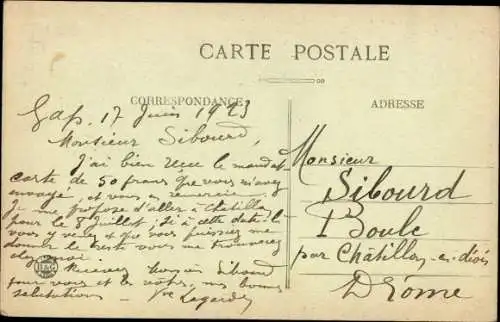 CARTE POSTALE
CORRESPONDANCE
ADRESSE
Gap, 17 Juin 1923
Monsieur Sibourd,
J'ai bien reçu le mandat
carte de 50 francs que vous m'avez
envoyé et vous en remercie
Je me propose d'aller à Châtillon
pour le 8 Juillet, Si à cette date là
vous y venez et que vous puissiez me
donner le reste vous me trouverez
chez moi.
Recevez Monsieur Sibourd
pour vous et les vôtres, mes bonnes
salutations - Vve Lagarde
B&G
Monsieur
Sibourd
Boule
par Châtillon-en-diois
Drôme